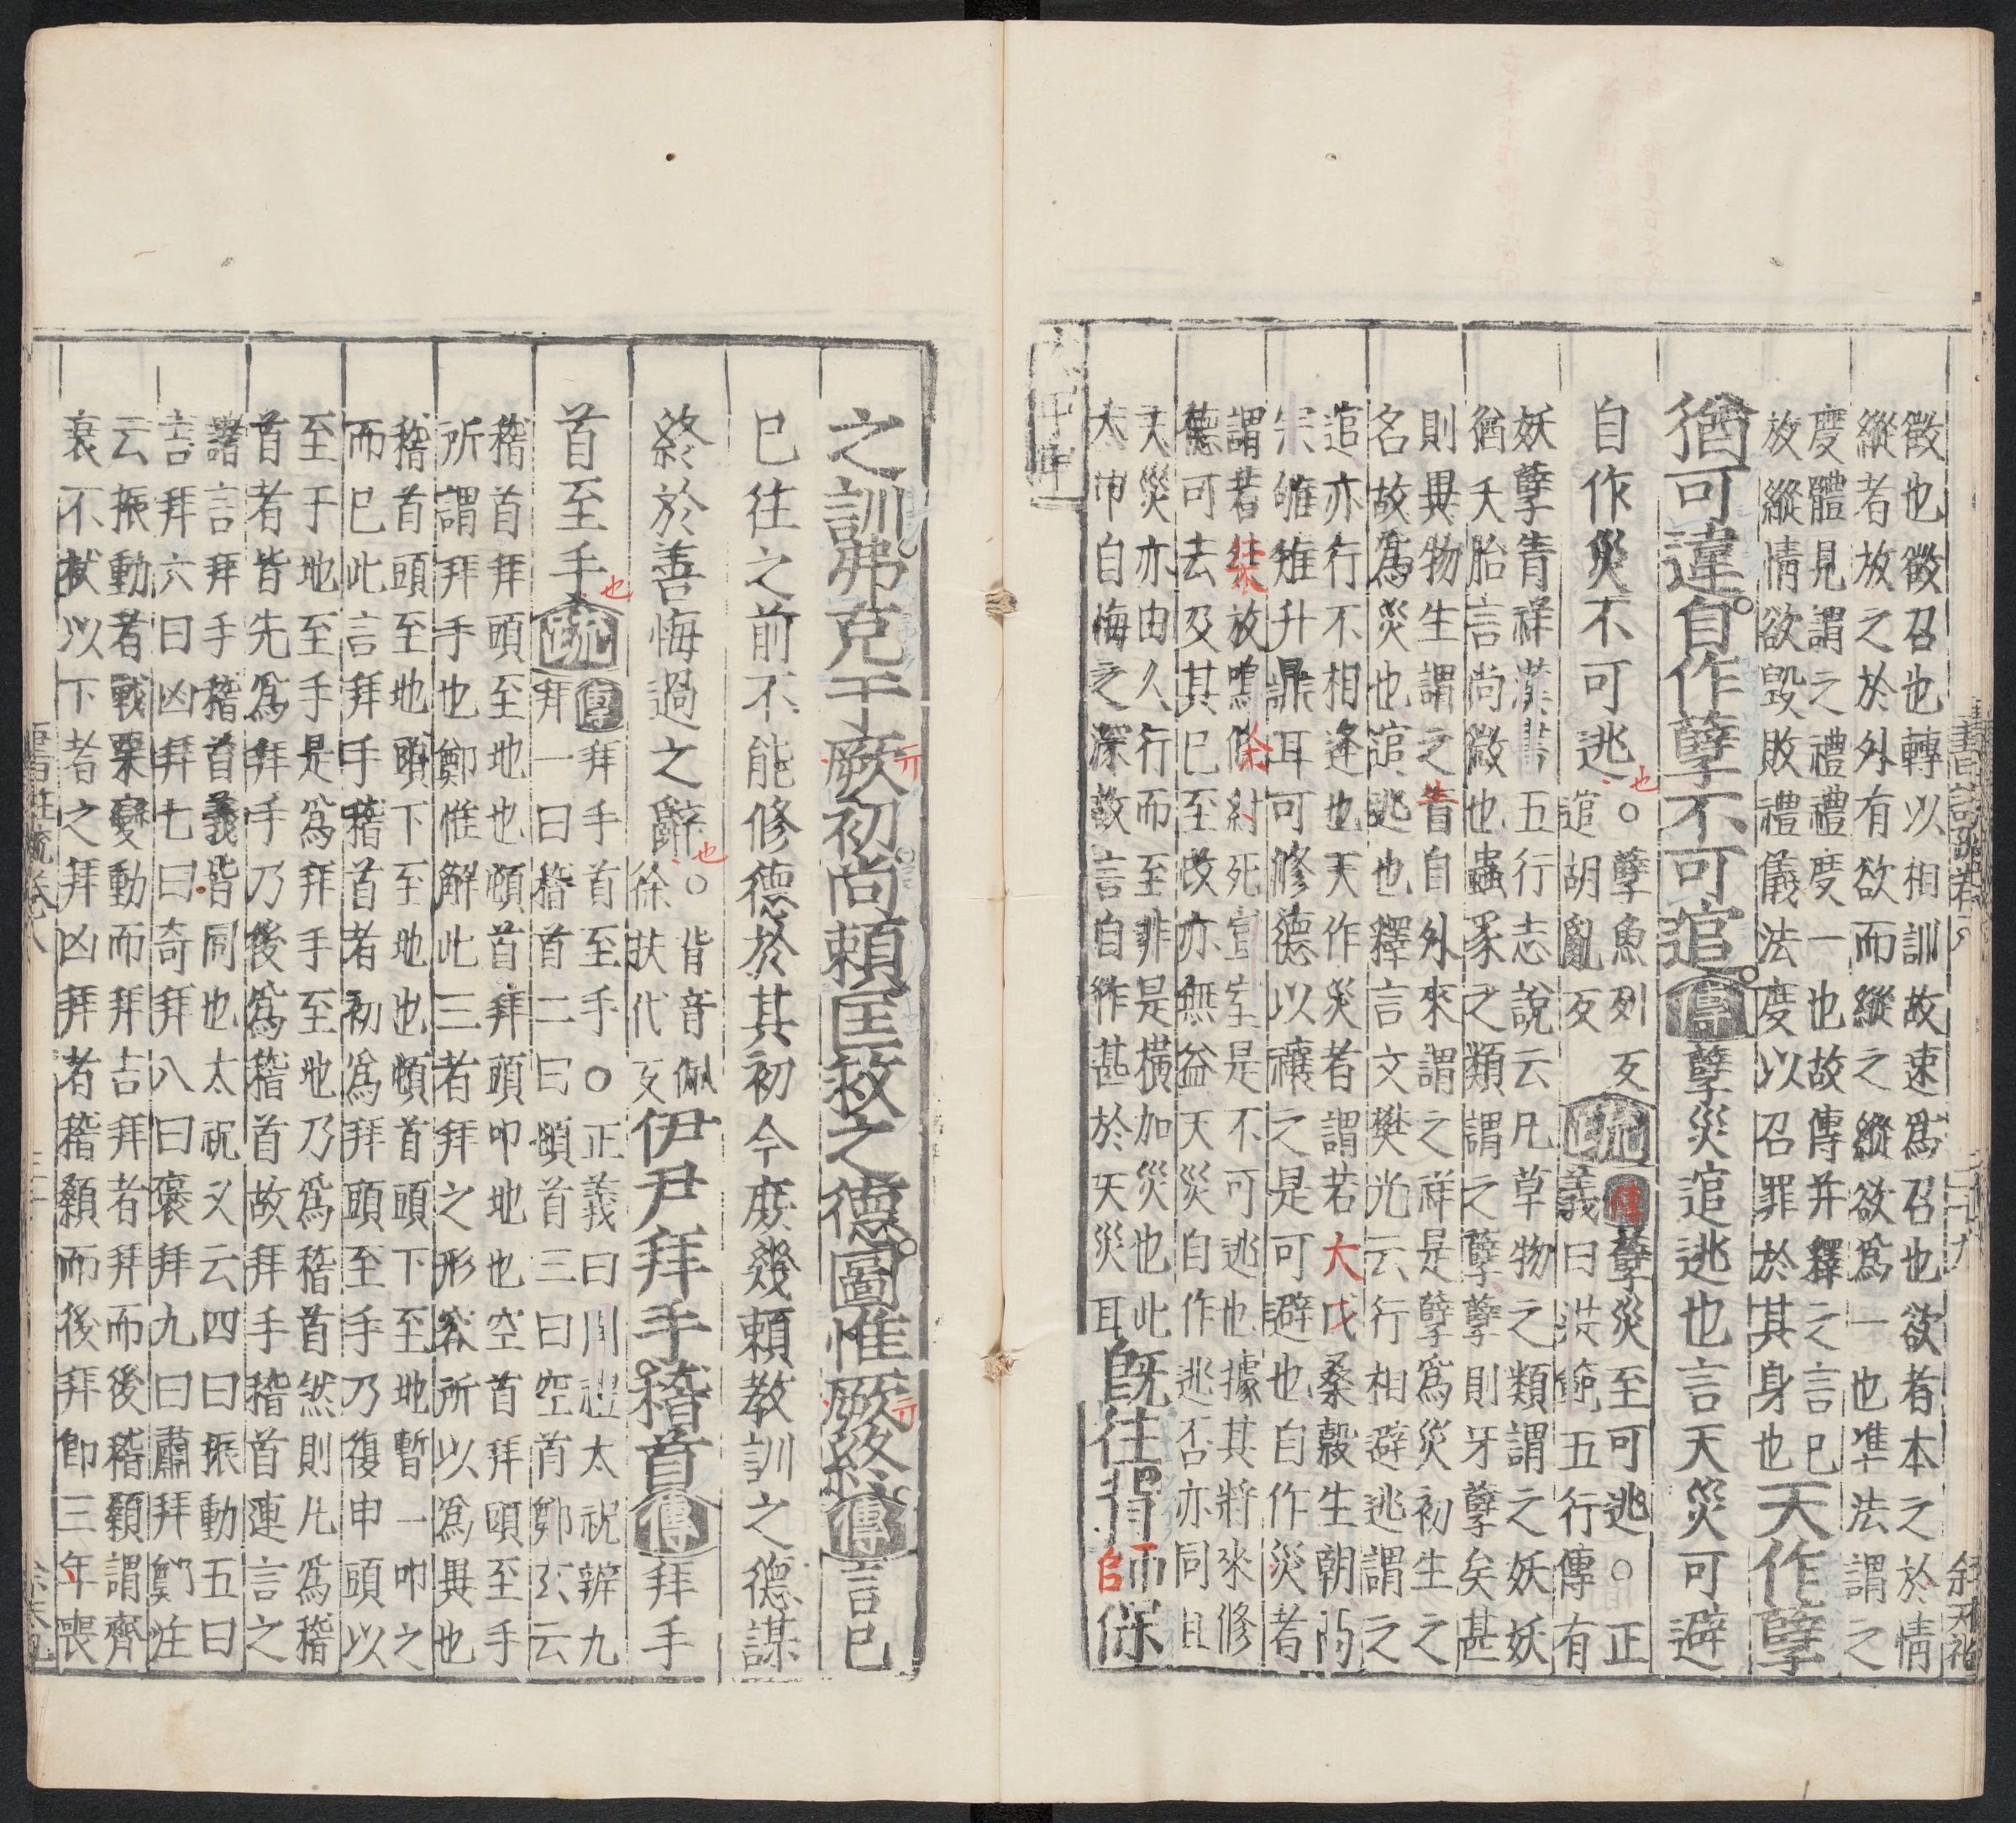 徵也徵召也轉以相訓故速爲召也欲者本之於情
縱者放之於外有欲而縱之縱欲爲一也準法謂之
度體見謂之禮禮度一也故傳并釋之言巳
放縱情欲毀敗禮儀法度以召罪於其身也
天作孽
猶可違自作孽不可逭傳孽災逭逃也言天災可避
自作災不可逃也
○孽魚列反
逭胡亂反
疏
傳孽災至可逃○正
義曰洪範五行傳有
妖孽眚祥漢書五行志說云凡草物之類謂之妖妖
猶夭胎言尚微也蟲豕之類謂之孽孽則牙孽矣甚
則異物生謂之眚自外來謂之祥是孽爲災初生之
名故爲災也逭逃也釋言文樊光云行相避逃謂之
逭亦行不相逢也天作災者謂若大戊桑榖生朝高
宗雊雉升鼎耳可修德以禳之是可避也自作災者
謂若桀放鳴條紂死宣室是不可逃也據其將來修
德可去及其巳至改亦無益天災自作逃否亦同且
天災亦由人行而至非是橫加災也此
太甲自悔之深故言自作甚於天災耳
旣往背師保
太甲中
之訓弗克于厥初尚賴匡救之德圖惟厥終傳言巳
巳往之前不能修德於其初今庶幾賴教訓之德謀
終於善悔過之辭也
○背音佩
徐扶代反
伊尹拜手稽首傳拜手
首至手也
疏
傳拜手首至手○正義曰周禮太祝辨九
拜一曰稽首二曰頓首三曰空首鄭玄云
稽首拜頭至地也頓首拜頭叩地也空首拜頭至手
所謂拜手也鄭惟解此三者拜之形容所以爲異也
稽首頭至地頭下至地也頓首頭下至地暫一叩之
而巳此言拜手稽首者初爲拜頭至手乃復申頭以
至于地至手是爲拜手至地乃爲稽首然則凡爲稽
首者皆先爲拜手乃後爲稽首故拜手稽首連言之
諸言拜手稽首義皆同也太祝又云四曰振動五曰
吉拜六曰凶拜七曰奇拜八曰襃拜九曰肅拜鄭注
云振動者戰栗變動而拜吉拜者拜而後稽顙謂齊
衰不杖以下者之拜凶拜者稽顙而後拜卽三年喪